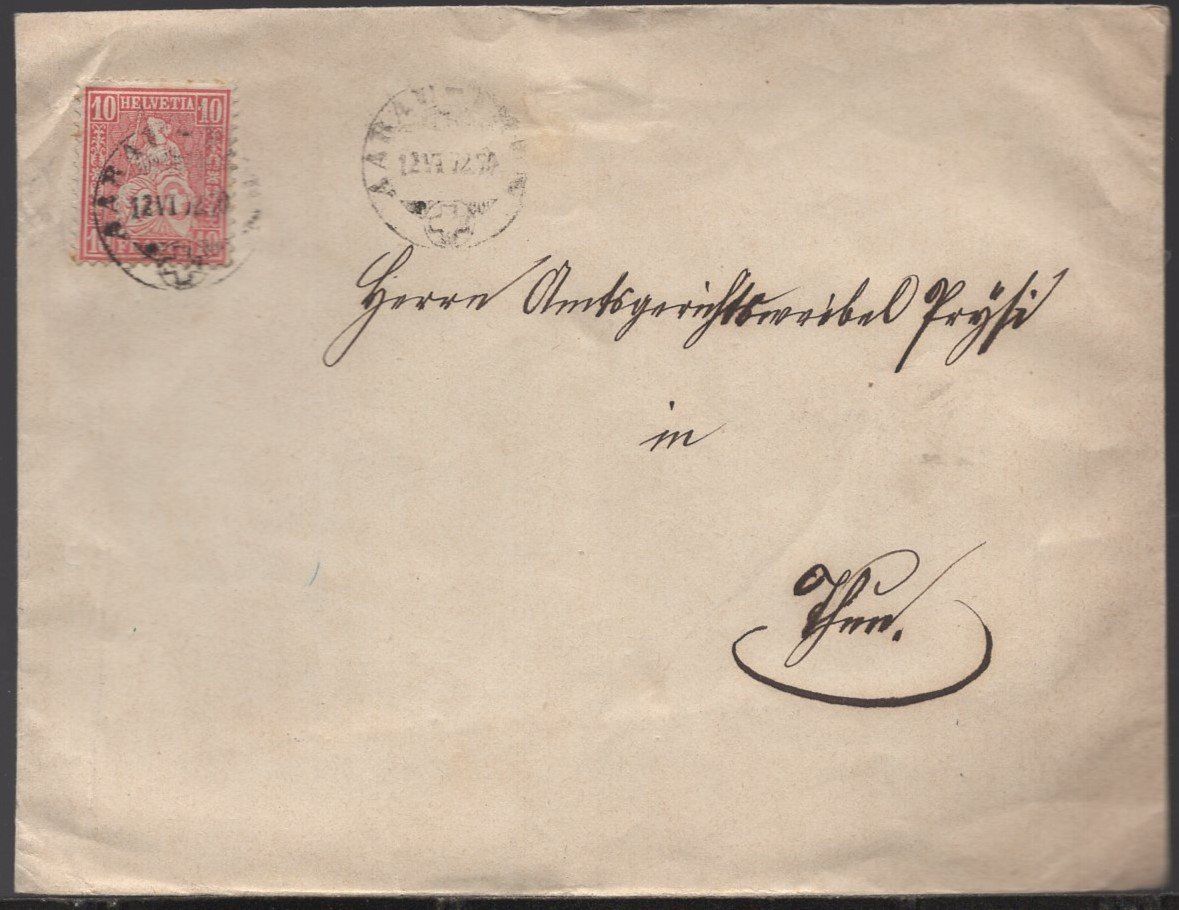 10 HELVETIA 10
AARAU
12 VI 72
AARAU
12 VI 72
Herrn Amtsgerichtsweibel Prÿsi
in
Thun.